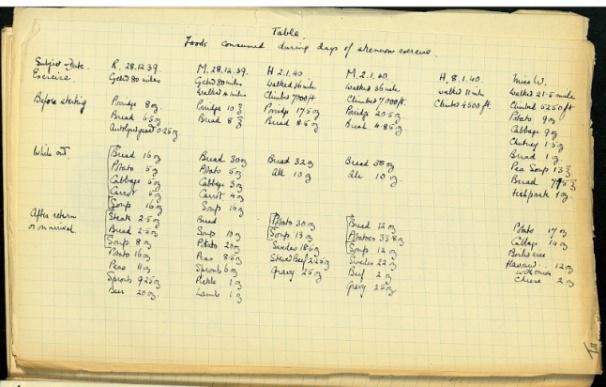 Table.
Foods consumed during days of strenuous exercise.
Subject + Date. R. 28.12.39. M. 28.12.39. H 2.1.40. M. 2.1.40. H. 8.1.40. Miss W.
Exercise. Cycled 80 miles Cycled 80 miles walked 36 miles walked 36 miles walked 11 miles walked 21.5 miles
walked 6 miles Climbed 7000 ft Climbed 7000 ft. Climbed 4500 ft. Climbed 5250 ft
Before starting Porridge 8 oz Porridge 10 oz Porridge 17.5 oz Porridge 20.5 oz Potato 9 oz
Bread 6.5 oz Bread 8 oz Bread 8.5 oz Bread 4.85 oz Cabbage 9 oz
0.25 oz Chutney 1.5 oz
While out Bread 16 oz Bread 30 oz Bread 32 oz Bread 38 oz Bread 1 oz
Potato 5 oz Potato 5 oz Ale 10 oz Ale 10 oz Pea Soup 13 oz
Cabbage 5 oz Cabbage 3 oz Bread
Carrot Carrot 4 oz Fishpaste 1 oz
Soup 16 oz Soup 16 oz
After return Steak 2.5 oz Bread Potato 30 oz Bread 12 oz Potato 17 oz
or on arrival Bread 2.5 oz Soup 10 oz Soup 13 oz Potatoes 33.8 oz Cabbage 14 oz
Soup 8 oz Potato 20 oz Swedes 18.5 oz Soup 12 oz Boiled rice
Potato 16 oz Peas 8.5 oz Stewed Beef 2.25 oz Swedes 22 oz flavoured 12 oz
Peas 11 oz Sprouts 6 oz Gravy 2.5 oz Beef 2 oz with
Sprouts 9.25 oz Pickle 1 oz Gravy 2.5 oz Cheese 2 oz
Beer 20 oz Lamb 1 oz